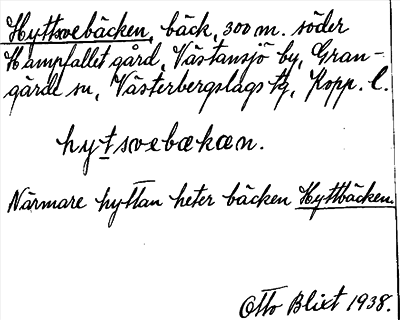 Hyttsvebäcken, bäck, 300 m. söder
Hampfallet gård, Västansjö by, Gran-
gärde sn, Västerbergslags tg, Kopp. l.
hytsvebækæn.
Närmare hyttan heter bäcken Hyttbäcken.
Otto Blixt 1938.